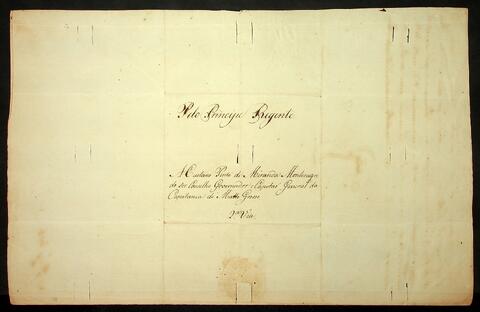 Pelo Principe Regente
A Caetano Pinto de Miranda Montenegro
do seu Conselho Governador e Capitão General da
Capitania de Matto Grosso
2.ª Via